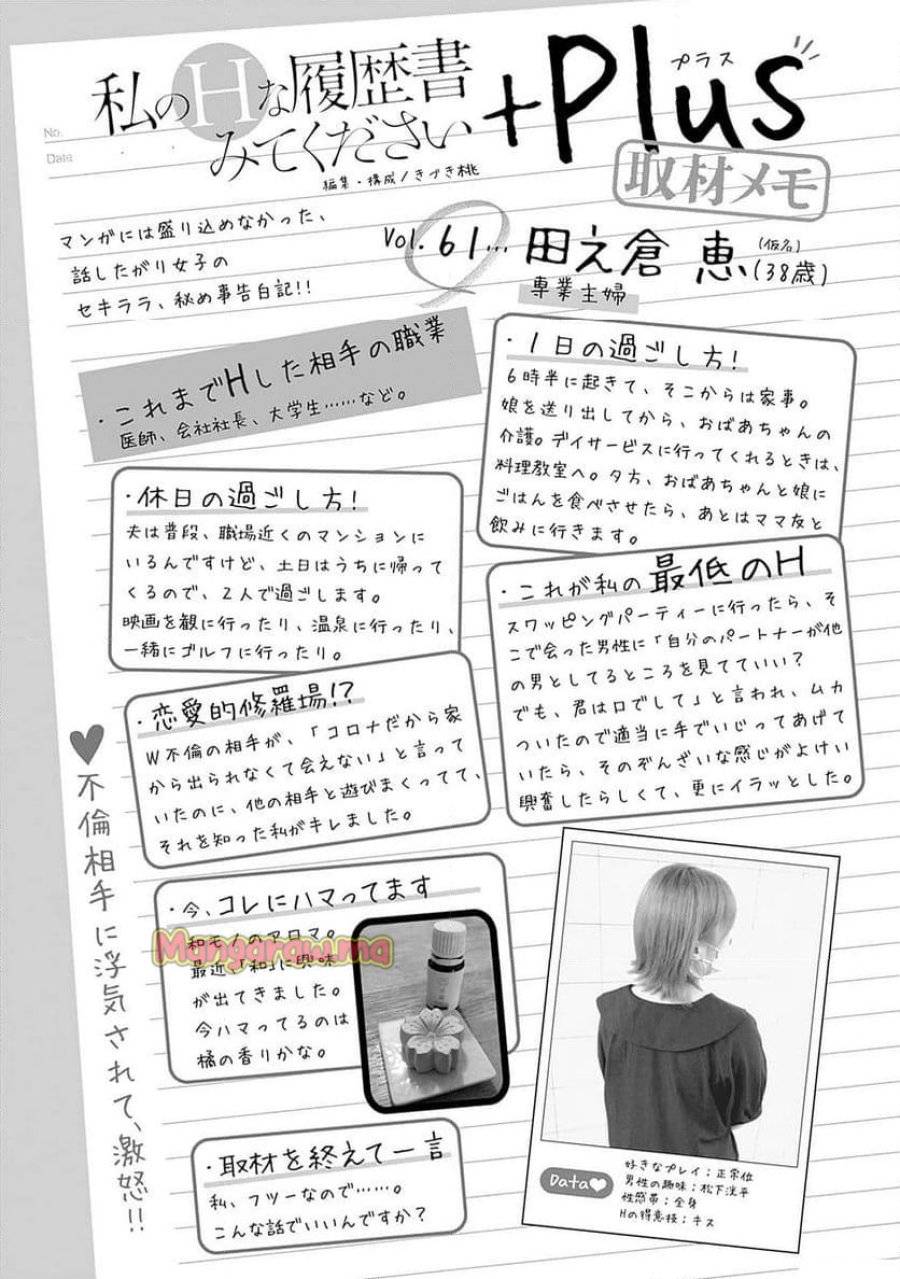 No.
Date
私のHな履歴書
みてください
+Plus
プラス
編集・構成/きづき桃
取材メモ
マンガには盛り込めなかった、
話したがり女子の
セキララ、秘め事告白記!!
Vol.61… 田え倉 恵(仮名)(38歳)
専業主婦
・これまでHした相手の職業
医師、会社社長、大学生……など。
・1日の過ごし方!
6時半に起きて、そこからは家事。
娘を送り出してから、おばあちゃんの
介護。デイサービスに行ってくれるときは、
料理教室へ。夕方、おばあちゃんと娘に
ごはんを食べさせたら、あとはママ友と
飲みに行きます。
・休日の過ごし方!
夫は普段、職場近くのマンションに
いるんですけど、土日はうちに帰って
くるので、2人で過ごします。
映画を観に行ったり、温泉に行ったり、
一緒にゴルフに行ったり。
・これが私の最低のH
スワッピングパーティーに行ったら、そ
こで会った男性に「自分のパートナーが他
の男としてるところを見てていい?
でも、君は口でして」と言われ、ムカ
ついたので適当に手でいじってあげて
いたら、そのぞんざいな感じがよけい
興奮したらしくて、更にイラッとした。
・恋愛的修羅場!?
W不倫の相手が、「コロナだから家
から出られなくて会えない」と言って
いたのに、他の相手と遊びまくってて、
それを知った私がキレました。
♥不倫相手に浮気されて、激怒!!
・今、コレにハマってます
和モノのアロマ。
最近「和」に興味
が出てきました。
今ハマってるのは
橘の香りかな。
Mangaraw.ma
・取材を終えて一言
私、フツーなので……。
こんな話でいいんですか?
Data♥
好きなプレイ;正常位
男性の趣味;松下洸平
性感帯;全身
Hの得意技;キス